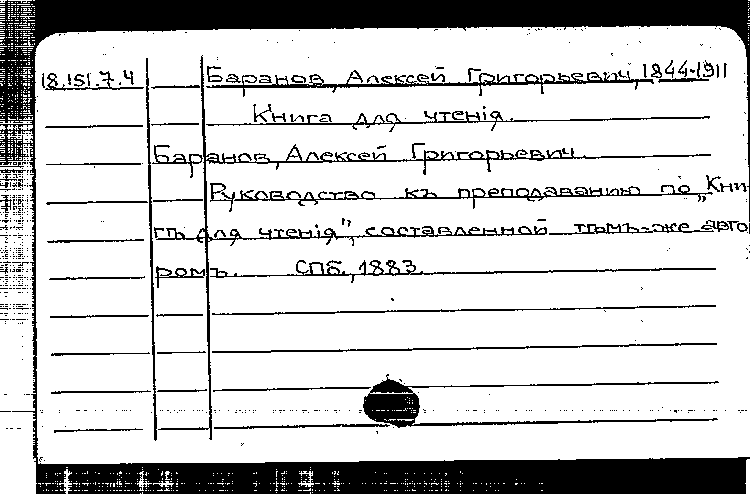 18.151.7.4 Баранов, Алексей Григорьевич, 1844-1911
Книга для чтенія.
Баранов, Алексей Григорьевич.
Руководство къ преподаванию по „Кни-
гѣ для чтенія", составленной тѣмъ-же авто
ромъ. СПб., 1883.